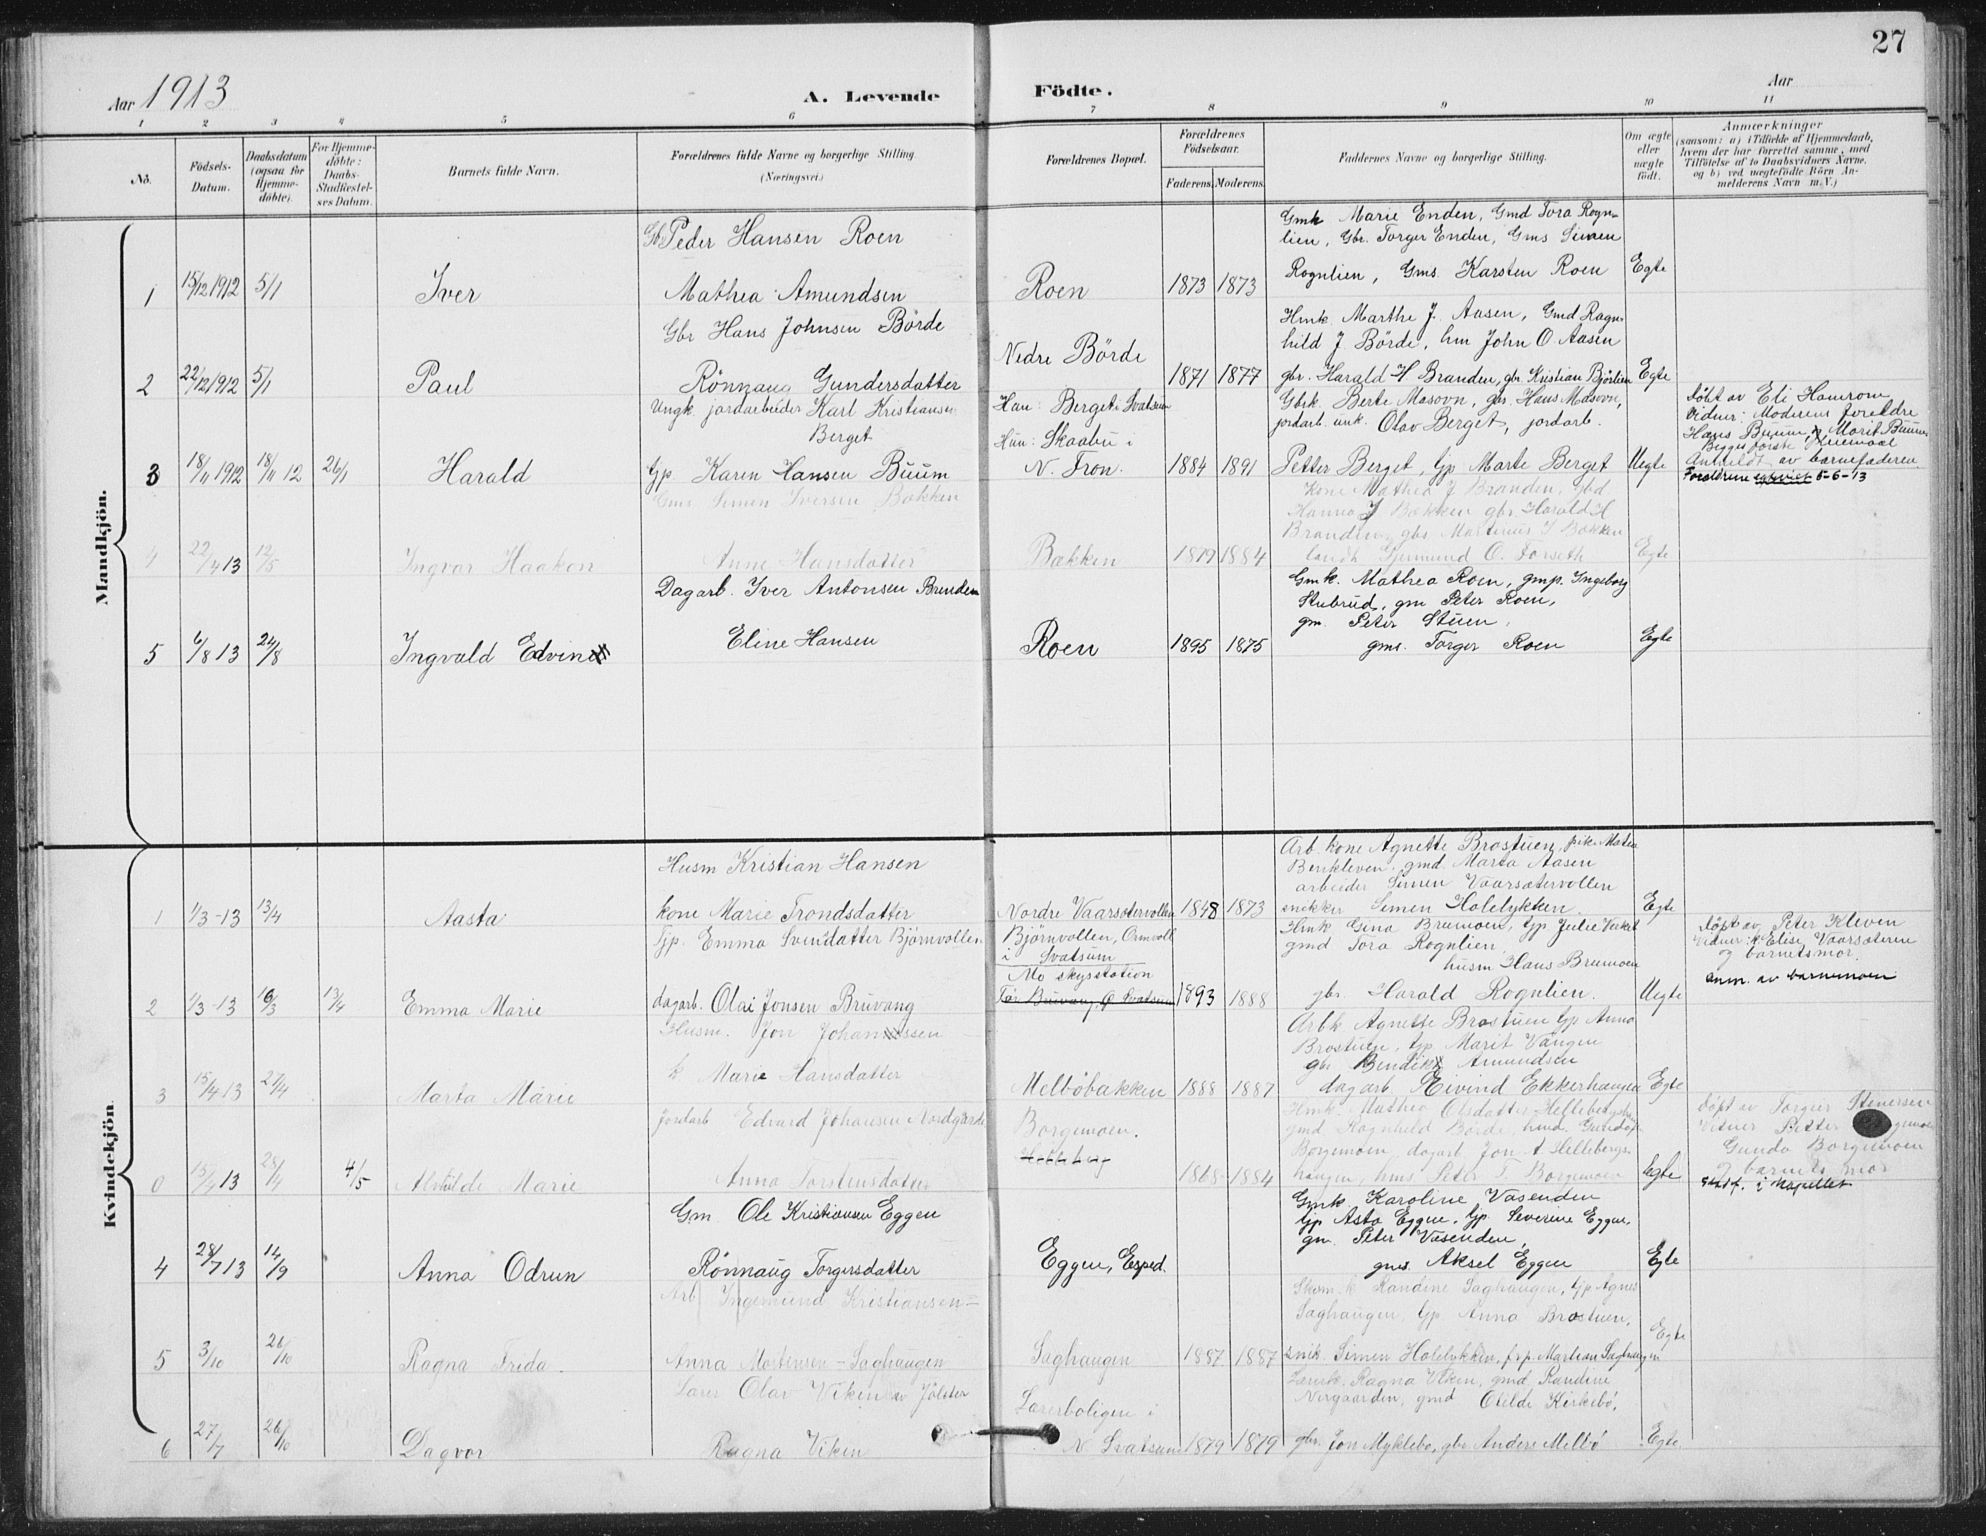 27
Aar 1913
A. Levende
Födte.
Aar
1 2 3 4 5 6 7 8 9 10 11
No.
Födsels-
Datum.
Daabsdatum
(ogsaa for
Hjemme-
döbte).
For Hjemme-
döbte:
Daabs-
Stadfæstel-
ses Datum.
Barnets fulde Navn.
Forældrenes fulde Navne og borgerlige Stilling
(Næringsvei.)
Forældrenes Bopæl.
Forældrenes
Födselsaar.
Faderens. Moderens.
Faddernes Navne og borgerlige Stilling.
Om ægte
eller
uægte
födt.
Anmærkninger
(saasom: a) i Tilfælde af Hjemmedaab,
hvem der har forrettet samme, med
Tilföielse af to Daabsvidners Navne,
og b) ved uægtefödte Börn An-
melderens Navn m.V.)
Mandkjön.
Gb Peder Hansen Roen
Gmk Marie Enden, Gmd Tora Rogn-
lien, Gbr. Torger Enden, Gms Simen
1 15/12 1912 5/1 Iver Mathea Amundsen Roen 1873 1873 Rognlien, Gms. Karsten Roen Egte
Gbr Hans Johnsen Börde
Hmk. Marthe J. Aasen, Gmd Ragn-
hild J. Börde, hm John O. Aasen
2 22/12 1912 5/1 Paul Rönnaug Gundersdatter Nedre Börde 1871 1877 gbr. Harald H Branden, gbr. Kristian Björlien Egte
Ungk. jordarbeider Karl Kristiansen
Berget
Han: Berget i Svatsum
Hun: Skaabu i
N. Fron.
Gbrk. Berte Masovn, gbr. Hans Masovn,
jordarb. unk. Olav Berget, jordarb.
3 18/11 1912 18/11 12 26/1 Harald Gp Karen Hansen Buum 1884 1891 Petter Berget, Gp Marte Berget Uegte
Döbt av Eli Hamrom
Vidner: Moderens foreldre
Hans Buum, Marit Buum
Begges förste
Anmeldt av barnefaderen
Foreldrene egteviet 5-6-13
Gms. Simen Iversen Bakken
Kone Mathea J Branden, Gbd
Hanna J Bakken gbr. Harald H
Branden, gbs Martinus I Bakken
4 22/4 13 12/5 Ingvar Haakon Anne Hansdatter Bakken 1879 1884 landh Gjermund O. Forseth Egte
Dagarb. Iver Antonsen Brenden
Gmk. Mathea Roen, gmp. Ingeborg
Stubrud, gm Peter Roen,
gm. Peter Stuen,
5 6/8 13 24/8 Ingvald Edvin Eline Hansen Roen 1895 1875 gms. Torger Roen Egte
Kvindekjön.
Husm Kristian Hansen
Arb. kone Agnette Brostuen, pike Matea
Benkleven, gmd Marta Aasen
arbeider Simen Vaarsætervollen
1 1/3-13 13/4 Aasta kone Marie Trondsdatter Nordre Vaarsætervollen 1848 1873 snikker Simen Hölelykken Egte
Tjp. Emma Svendsdatter Björnvollen
Björnvollen, Ormvoll
i Svatsum
Mo skysstation
Hmk Gina Brumoen, Gp Julie Veikel
gmd Tora Rognlien
husm Hans Brumoen
2 1/3-13 16/3 13/4 Emma Marie dagarb. Olai Jonsen Bruvang Far Bruvang, Ø. Svatsum 1893 1888 gbr. Harald Rognlien. Uegte
Döpt av Peter Kleven
Vidner: k Elise Vaarsæteren
og barnetsmor.
Anm. av barnemoen
Husm. Jon Johannssen
Arbk Agnette Brostuen Gp Anna
Brostuen, Gp Marit Vangen
gbr Bendik Amundsen
3 15/4 13 27/4 Marta Marie k Marie Hansdatter Melböbakken 1888 1887 dagarb Eivind Ekkerhaugen Egte
Jordarb Edvard Johansen Nordgarde
Borgemoen.
Helleberg
Hmk. Mathea Olsdatter Hellebergshaugen
gmd Ragnhild Börde, hmd. Gunda P
Borgemoen, dagarb Jon A Hellebergs-
0 15/4 13 28/4 4/5 Alvhilde Marie Anna Torstensdatter 1868 1884 haugen, hms Peter T. Borgemoen Egte
Döpt av Torger Stenersen
Vidner Petter
Gunda Borgemoen
og barnets mor
Stadf. i Kapellet
Gm. Ole Kristiansen Eggen
Gmk Karoline Vasenden
Gp Asta Eggen, Gp. Severine Eggen,
gm. Peter Vasenden,
4 28/7 13 14/9 Anna Odrun Rönnaug Torgersdatter Eggen, Esped. gms. Aksel Eggen Egte
Arb Ingemund Kristiansen
Skom. k Randine Saghaugen, Gp Agnes
Saghaugen, Gp Anna Brostuen,
5 3/10 26/10 Ragna Frida Anna Mortensen - Saghaugen Saghaugen 1887 1887 snik. Simen Hölelykken, frp. Martian Saghaugen Egte
Lærer Olav Viken av Jölster
Lærerboligen i
Lærik. Ragna Viken, gmd Randine
Nirgaarden, gmd Otilde Kirkebö,
6 27/7 26/10 Dagvor Ragna Viken N Svatsum 1879 1879 gbr. Jon Myklebo, gbr Anders Melbö Egte.